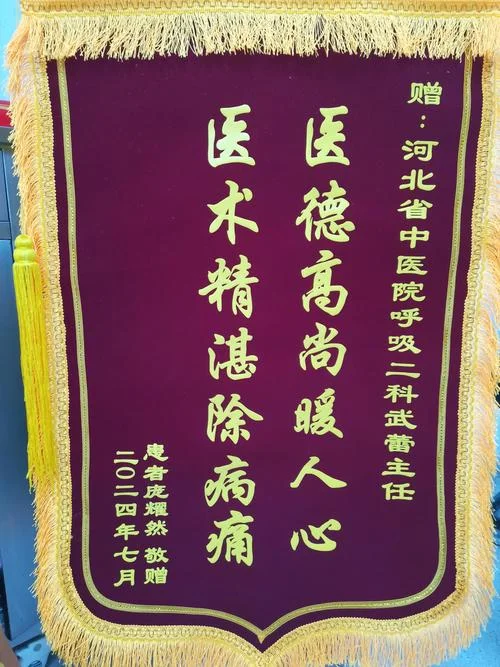 赠：河北省中医院呼吸二科武蕾主任
医德高尚暖人心
医术精湛除病痛
患者庞耀然 敬赠
二〇二四年七月